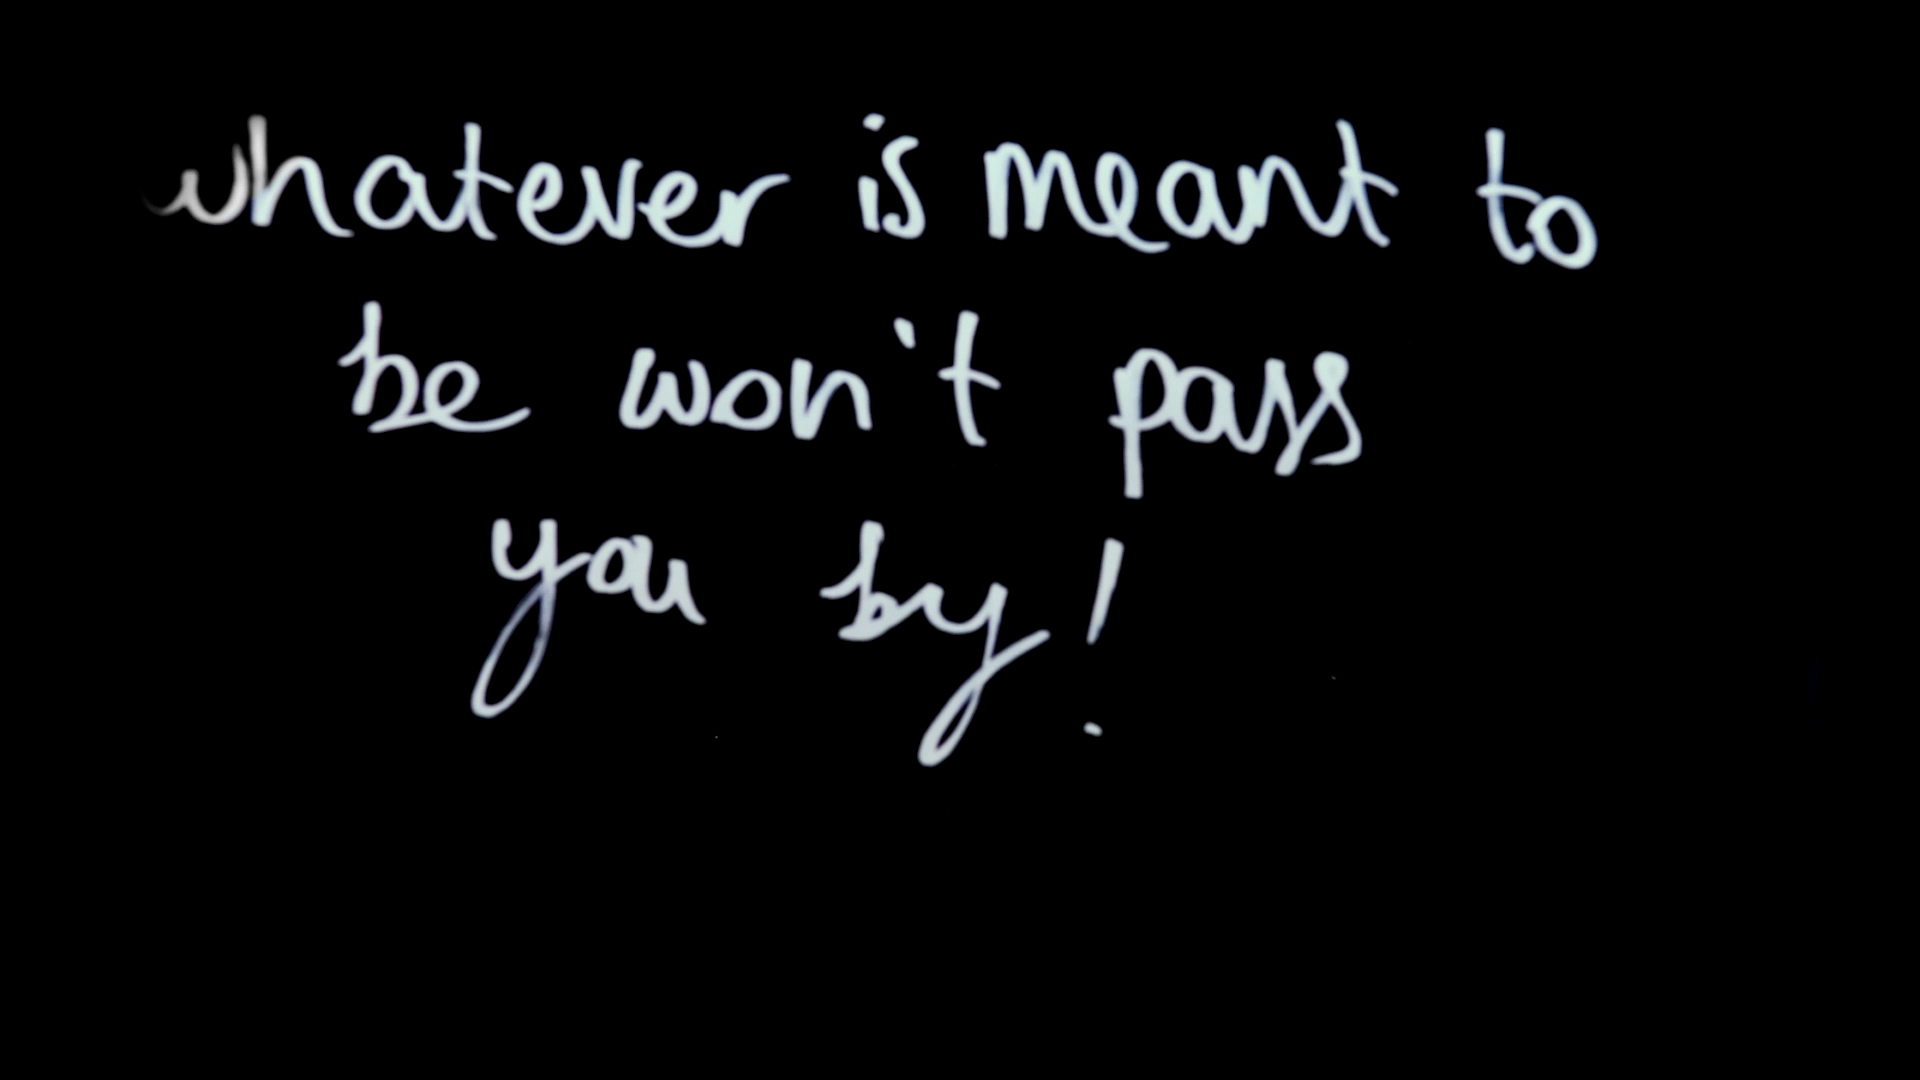 whatever is meant to
be won't pass
you by!